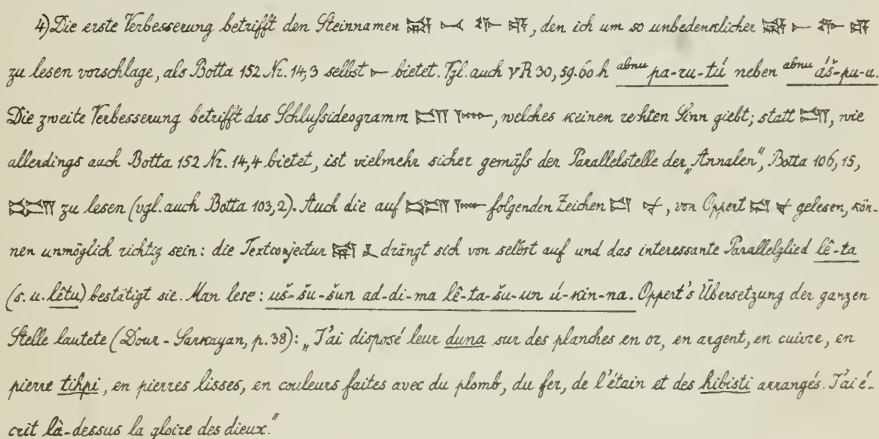 4) Die erste Verbesserung betrifft den Steinnamen , den ich um so unbedenklicher
zu lesen vorschlage, als Botta 152 Nr. 14,3 selbst 𒀸 bietet. Vgl. auch VR 30, 59.60 h abnu pa-ru-tú neben abnu áš-pu-u.
Die zweite Verbesserung betrifft das Schlußideogramm , welches keinen rechten Sinn giebt; statt , wie
allerdings auch Botta 152 Nr. 14,4 bietet, ist vielmehr sicher gemäß der Parallelstelle der „Annalen", Botta 106, 15,
zu lesen (vgl. auch Botta 103,2). Auch die auf folgenden Zeichen , von Oppert gelesen, kön-
nen unmöglich richtig sein: die Textconjectur drängt sich von selbst auf und das interessante Parallelglied lê-ta
(s. u. lêtu) bestätigt sie. Man lese: uš-šu-šun ad-di-ma lê-ta-šu-un ú-kin-na. Oppert's Übersetzung der ganzen
Stelle lautete (Dour-Sarkayan, p. 38): „J'ai disposé leur duna sur des planches en or, en argent, en cuivre, en
pierre tihpi, en pierres lisses, en couleurs faites avec du plomb, du fer, de l'étain et des hibisti arrangés. J'ai é-
crit là-dessus la gloire des dieux."